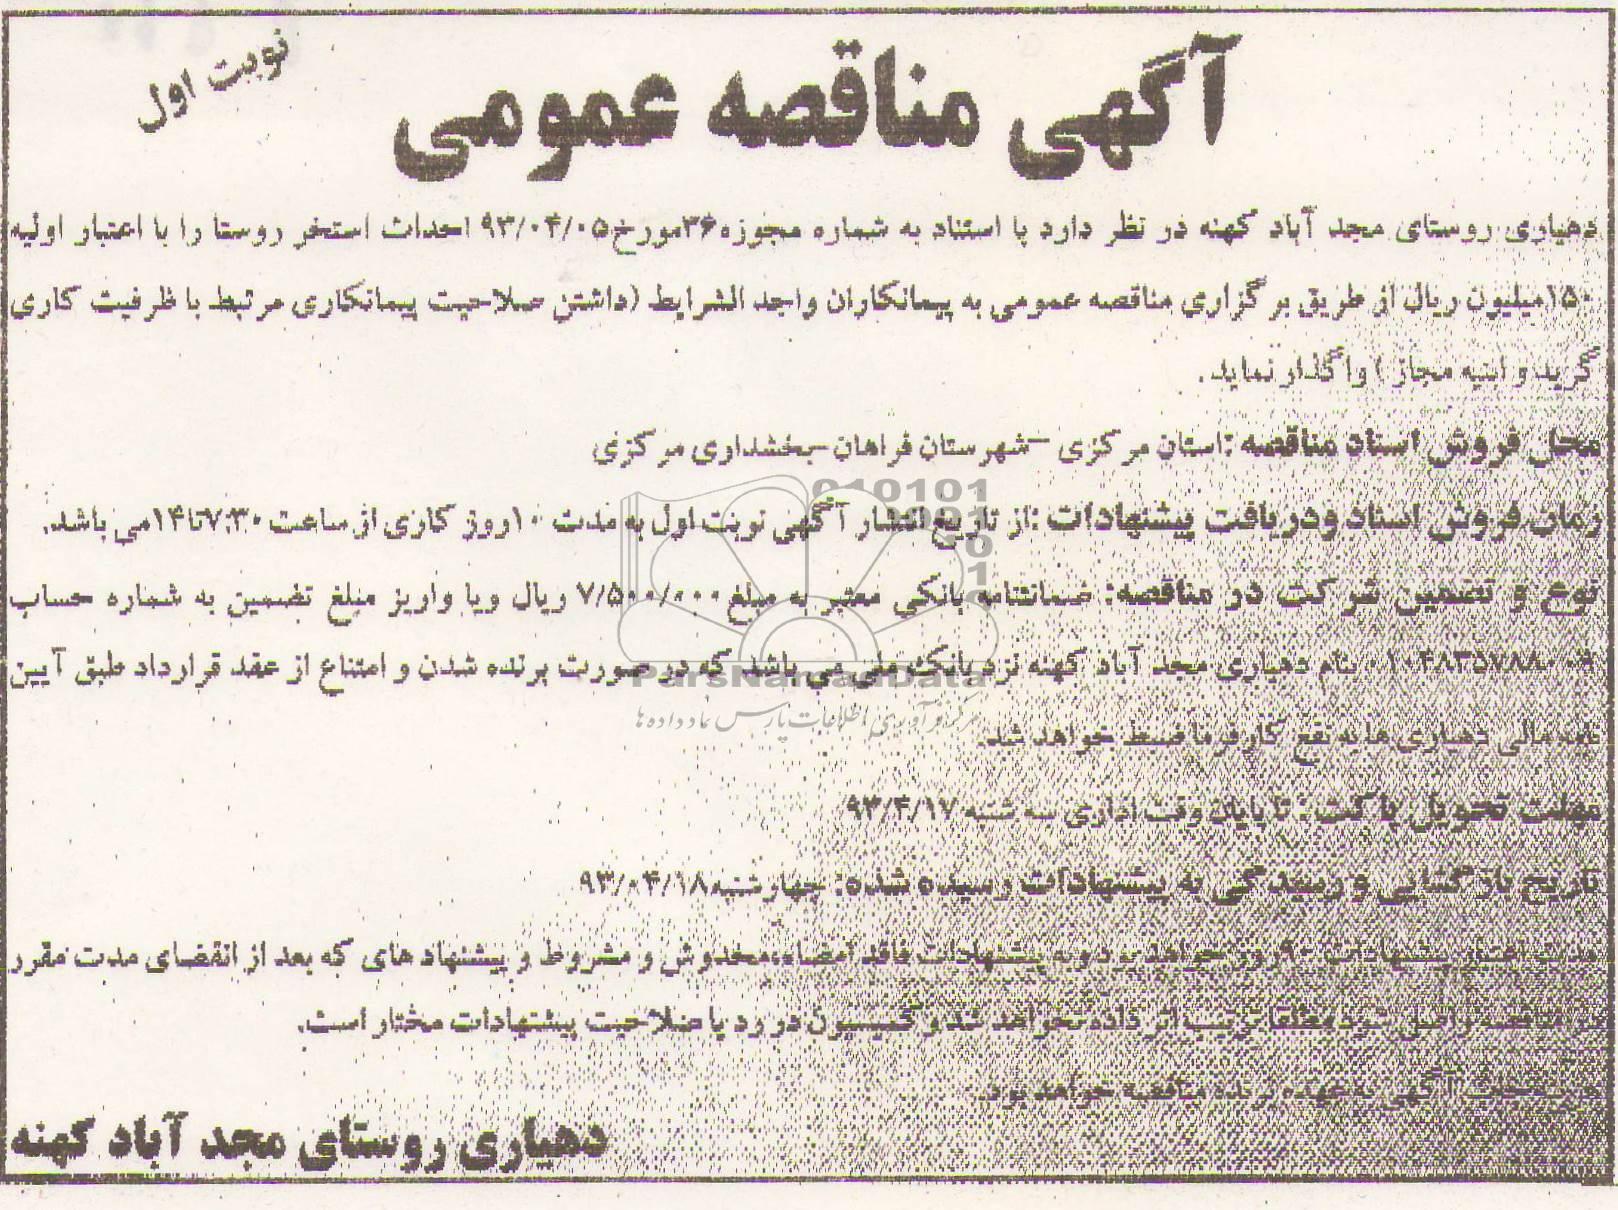 آگهی مناقصه عمومی
نوبت اول
دهیاری روستای مجد آباد کهنه در نظر دارد با استناد به شماره مجوزه ۳۶مورخ۹۳/۰۴/۰۵ احداث استخر روستا را با اعتبار اولیه
۱۵۰میلیون ریال از طریق برگزاری مناقصه عمومی به پیمانکاران واجد الشرایط (داشتن صلاحیت پیمانکاری مرتبط با ظرفیت کاری
گرید و ابنیه مجاز) واگذار نماید.
محل فروش اسناد مناقصه :استان مرکزی –شهرستان فراهان–بخشداری مرکزی
زمان فروش اسناد ودریافت پیشنهادات :از تاریخ انتشار آگهی نوبت اول به مدت ۱۰روز کاری از ساعت ۷:۳۰تا۱۴می باشد.
نوع و تضمین شرکت در مناقصه: ضمانتنامه بانکی معتبر به مبلغ ۷/۵۰۰/۰۰۰ ریال ویا واریز مبلغ تضمین به شماره حساب
بنام دهیاری مجد آباد کهنه نزد بانک ملی می باشد که در صورت برنده شدن و امتناع از عقد قرارداد طبق آیین
نامه مالی دهیاری ها به نفع کارفرما ضبط خواهد شد.
مهلت تحویل پاکت : تا پایان وقت اداری سه شنبه ۹۳/۴/۱۷
تاریخ بازگشایی و رسیدگی به پیشنهادات رسیده شده: چهارشنبه ۹۳/۰۴/۱۸
مدت اعتبار پیشنهادات ۹۰روز خواهد بود و به پیشنهادات فاقد امضاء،مخدوش و مشروط و پیشنهاد های که بعد از انقضای مدت مقرر
واصل شود مطلقا ترتیب اثر داده نخواهد شد و کمیسیون در رد یا صلاحیت پیشنهادات مختار است.
آگهی به عهده برنده مناقصه خواهد بود.
دهیاری روستای مجد آباد کهنه
ParsNamadData
مرکز فرآوری اطلاعات پارس نماد داده ها